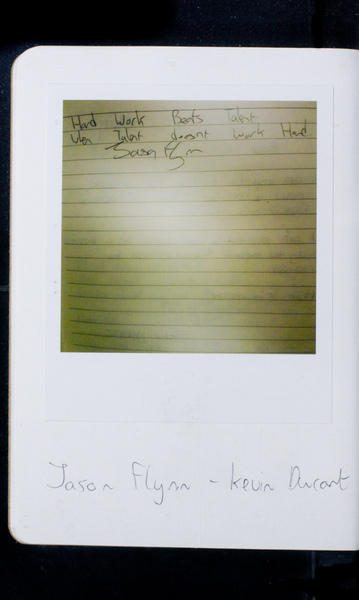 Hard Work Beats Talent
When Talent doesnt work Hard
Jason Flynn
Jason Flynn - Kevin Durant